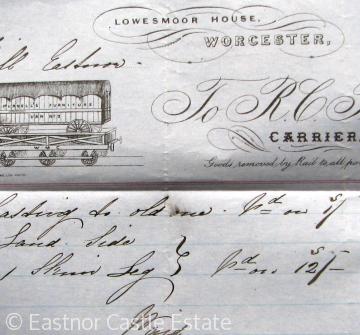 LOWESMOOR HOUSE,
WORCESTER,
Eastnor
FURNITURE
VAN No
To R. C.
CARRIER
Goods removed by Rail to all
Carting to old one. Pd on 5/
Land Side
1 Skim Leg } Pd on 12/-
© Eastnor Castle Estate